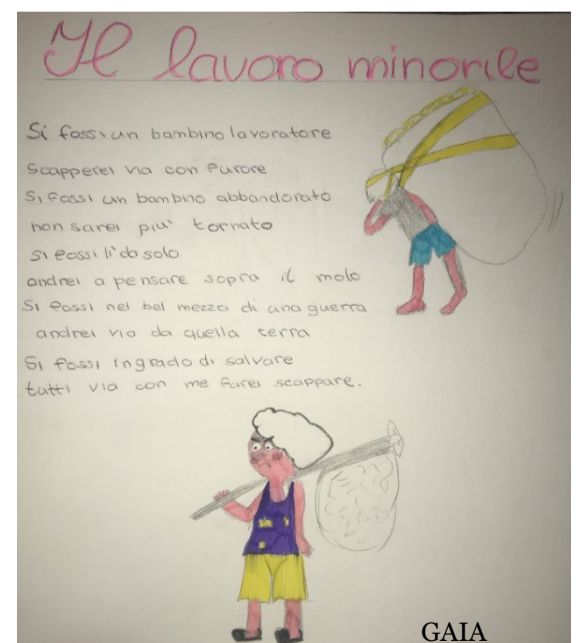 Il lavoro minorile
Si fossi un bambino lavoratore
Scapperei via con furore
Si fossi un bambino abbandonato
non sarei piu' tornato
si fossi lì da solo
andrei a pensare sopra il molo
Si fossi nel bel mezzo di una guerra
andrei via da quella terra
Si fossi in grado di salvare
tutti via con me farei scappare.
GAIA